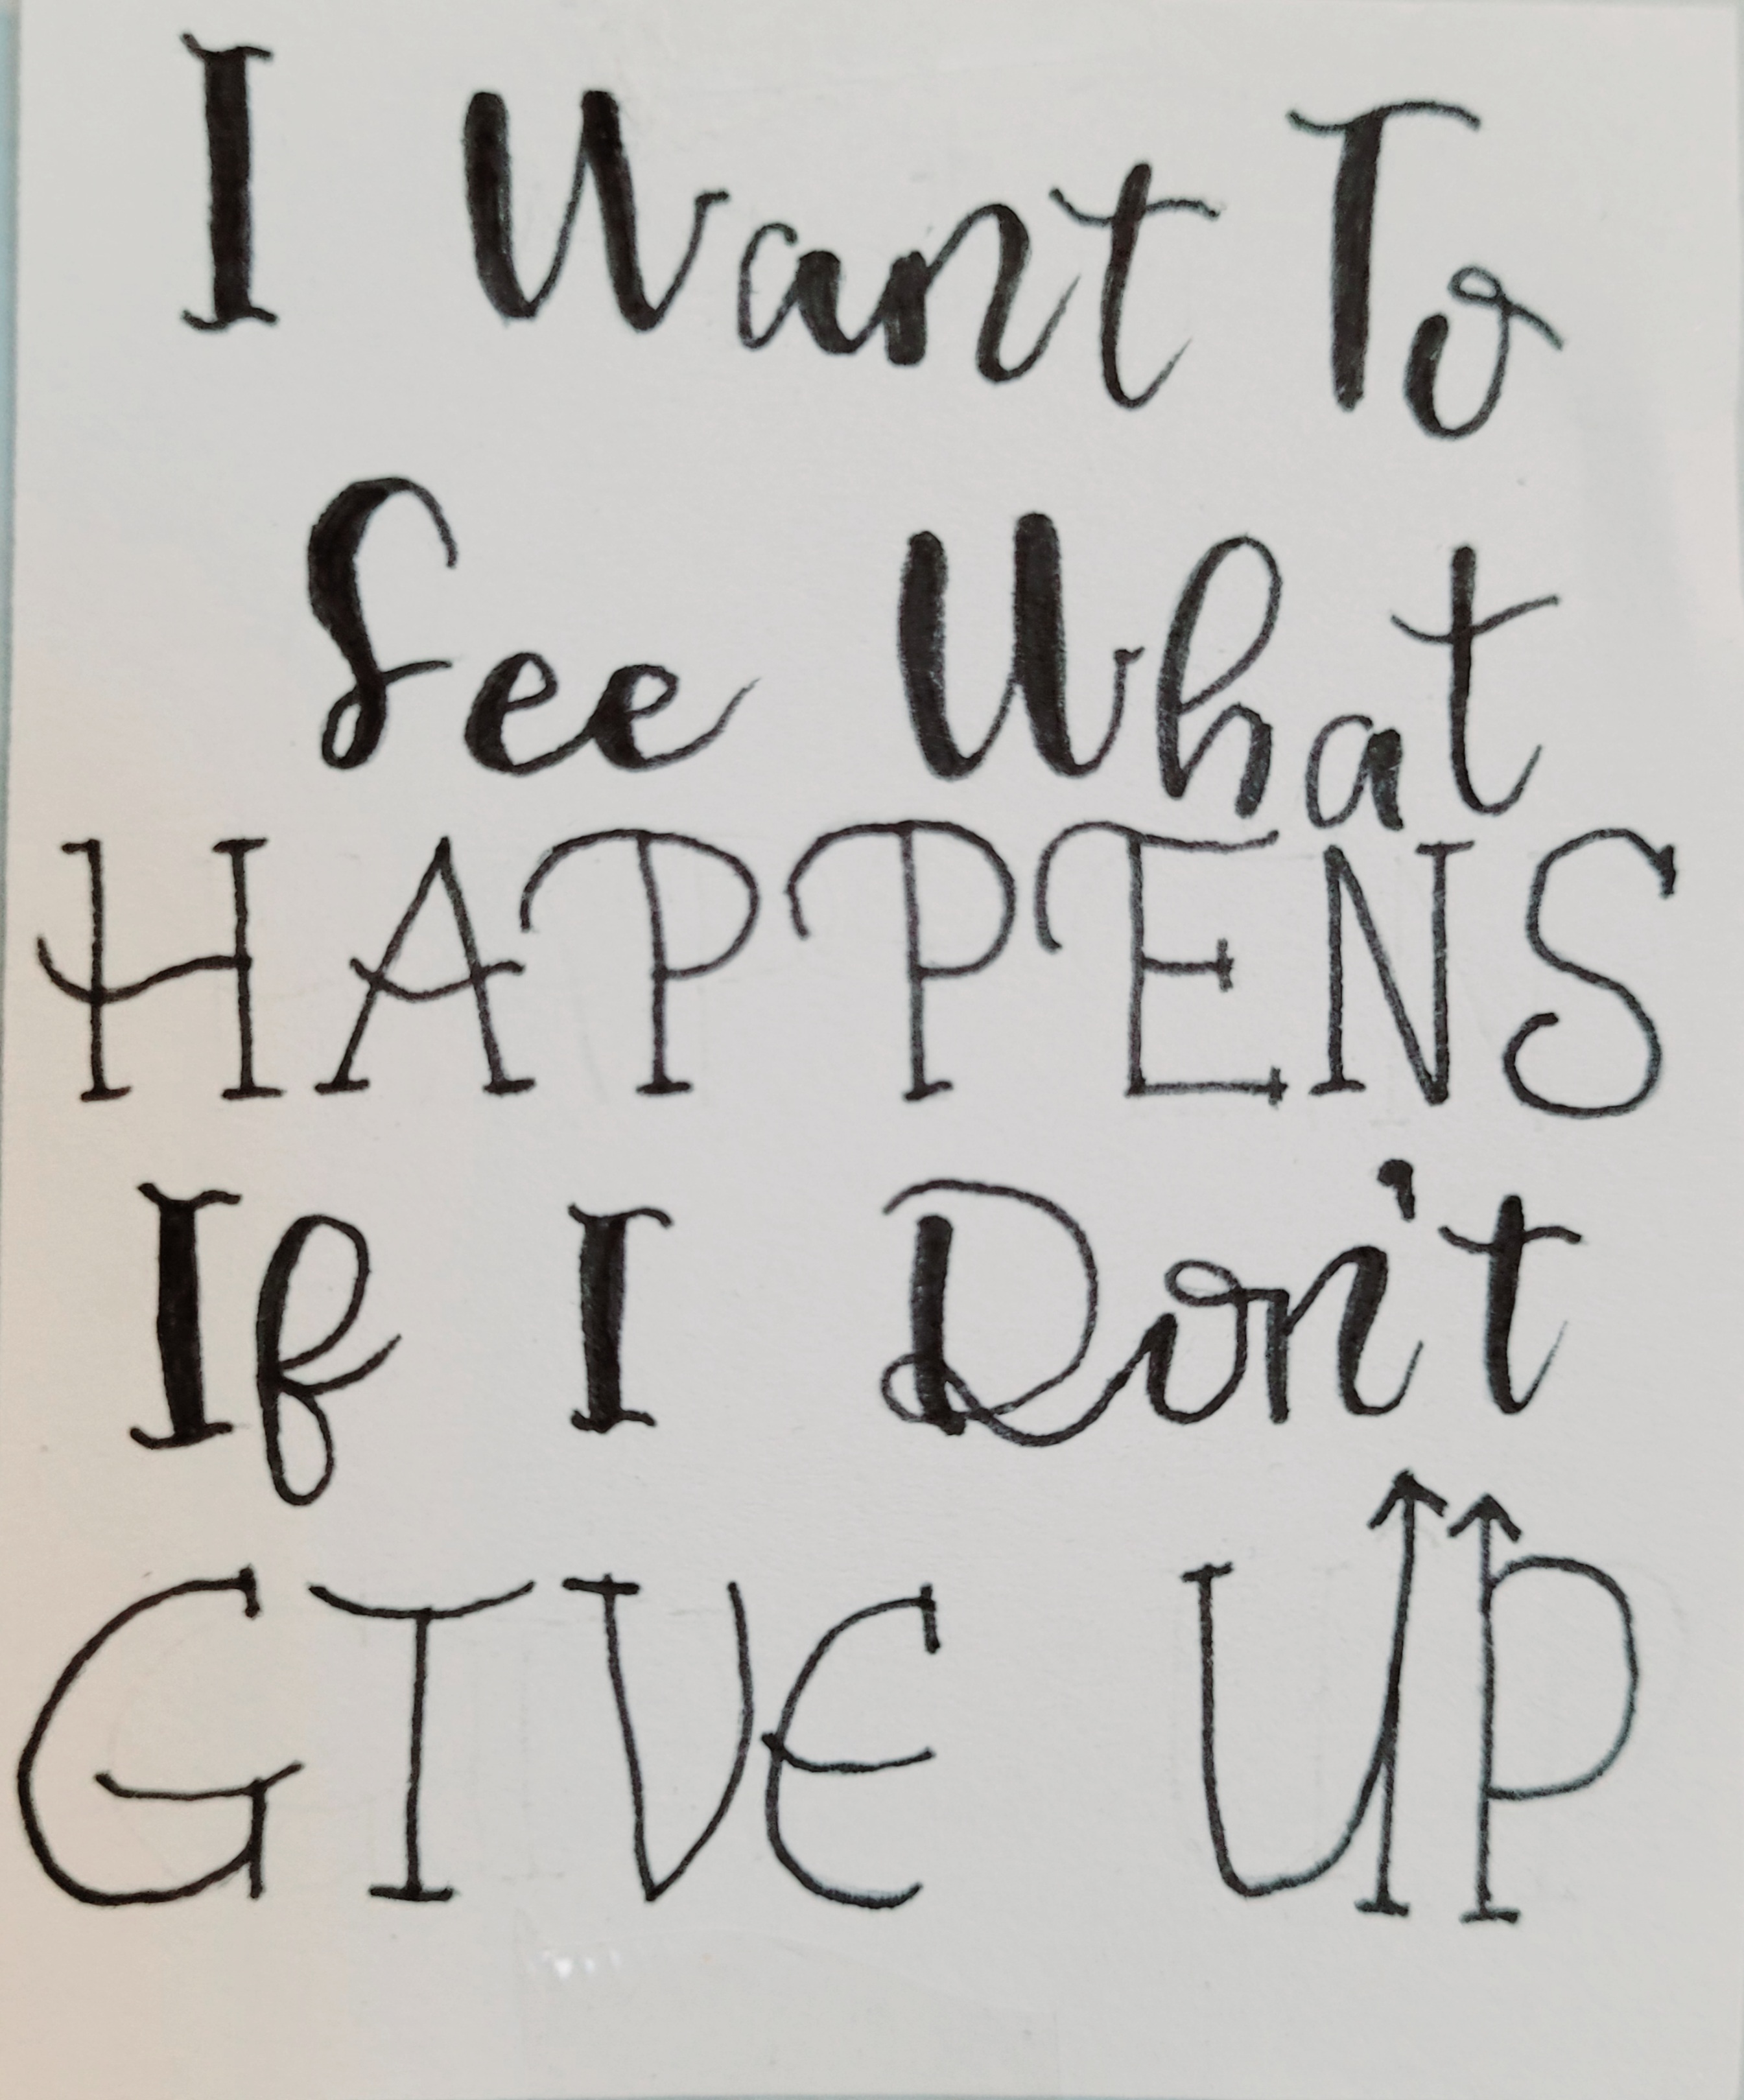 I Want To
See What
HAPPENS
If I Don't
GIVE UP